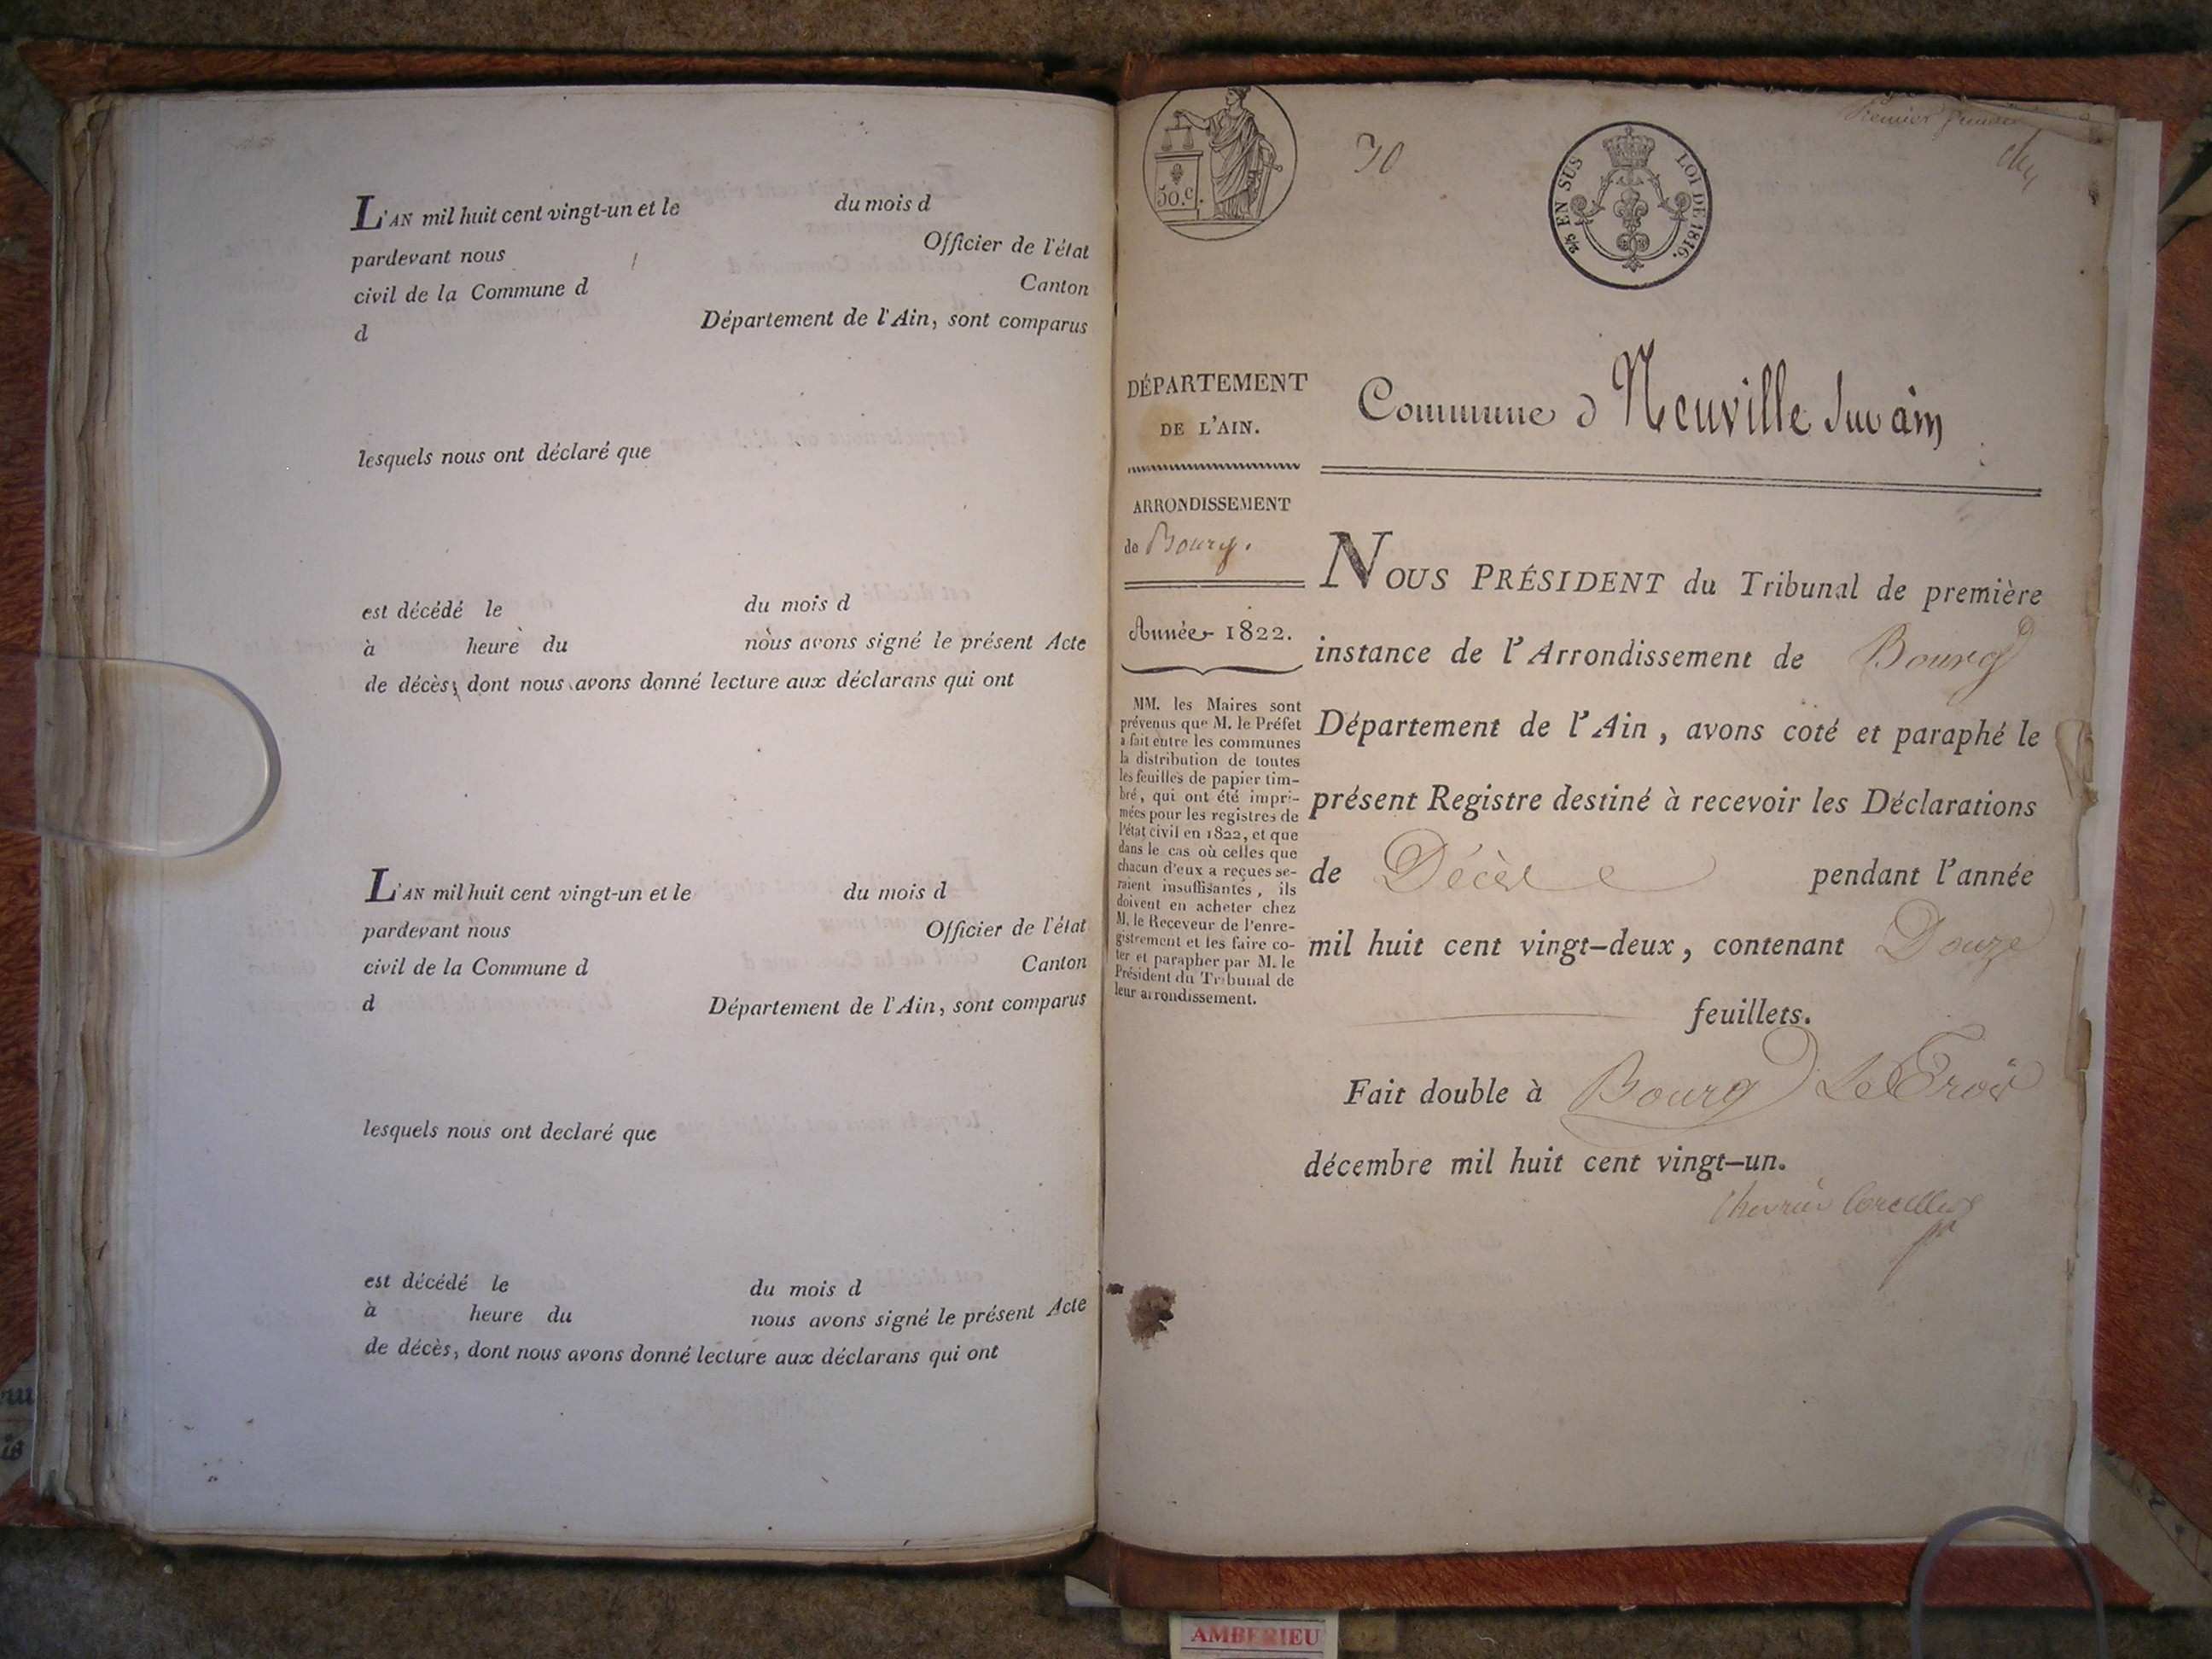 L'AN mil huit cent vingt-un et le du mois d
pardevant nous Officier de l'état
civil de la Commune d Canton
d Département de l'Ain, sont comparus
lesquels nous ont déclaré que
est décédé le du mois d
à heure du nous avons signé le présent Acte
de décès, dont nous avons donné lecture aux déclarans qui ont
L'AN mil huit cent vingt-un et le du mois d
pardevant nous Officier de l'état
civil de la Commune d Canton
d Département de l'Ain, sont comparus
lesquels nous ont declaré que
est décédé le du mois d
à heure du nous avons signé le présent Acte
de décès, dont nous avons donné lecture aux déclarans qui ont
50.c.
30
2/5 EN SUS LOI DE 1816.
Premier
DÉPARTEMENT
DE L'AIN.
ARRONDISSEMENT
de Bourg.
Année 1822.
MM. les Maires sont
prévenus que M. le Préfet
a fait entre les communes
la distribution de toutes
les feuilles de papier tim-
bré, qui ont été impri-
mées pour les registres de
l'état civil en 1822, et que
dans le cas où celles que
chacun d'eux a reçues se-
raient insuffisantes, ils
doivent en acheter chez
M. le Receveur de l'enre-
gistrement et les faire co-
ter et parapher par M. le
Président du Tribunal de
leur arrondissement.
Commune d Neuville sur ain
NOUS PRÉSIDENT du Tribunal de première
instance de l'Arrondissement de Bourg
Département de l'Ain, avons coté et paraphé le
présent Registre destiné à recevoir les Déclarations
de Décès pendant l'année
mil huit cent vingt-deux, contenant Douze
feuillets.
Fait double à Bourg Le Trois
décembre mil huit cent vingt-un.
Chevrier Corcelles
AMBERIEU